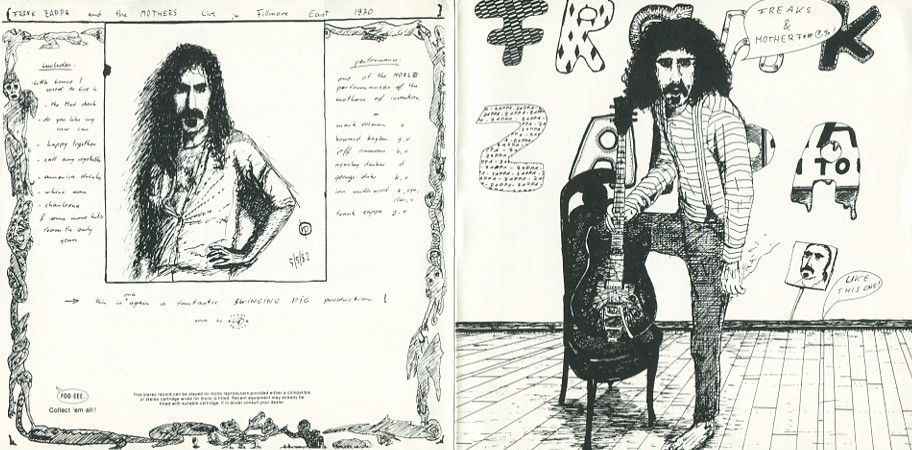 FRANK ZAPPA and the MOTHERS Live in Fillmore East 1970
includes:
little house I
used to live in
- the Mud shark
- do you like my
new car
- happy together
- call any vegetable
- america drinks
- whino man
- sharleena
& some more hits
from the early
years
performance:
one of the
performances of the
mothers of invention
mark volman v
howard kaylan g, v
jeff simmons b, v
aynsley dunbar d
george duke k, v
ian underwood k, sax,
frank zappa g, v
5/5/82
→ this is once again a fantastic SWINGING PIG production !
POO-EEE.
Collect 'em all!
This stereo record can be played on mono reproducers provided either a compatible
or stereo cartridge wired for mono is fitted. Recent equipment may already be
fitted with suitable cartridge. If in doubt consult your dealer.
FREAKS
&
MOTHERF*#@%!
TO
LIKE
THIS ONE!